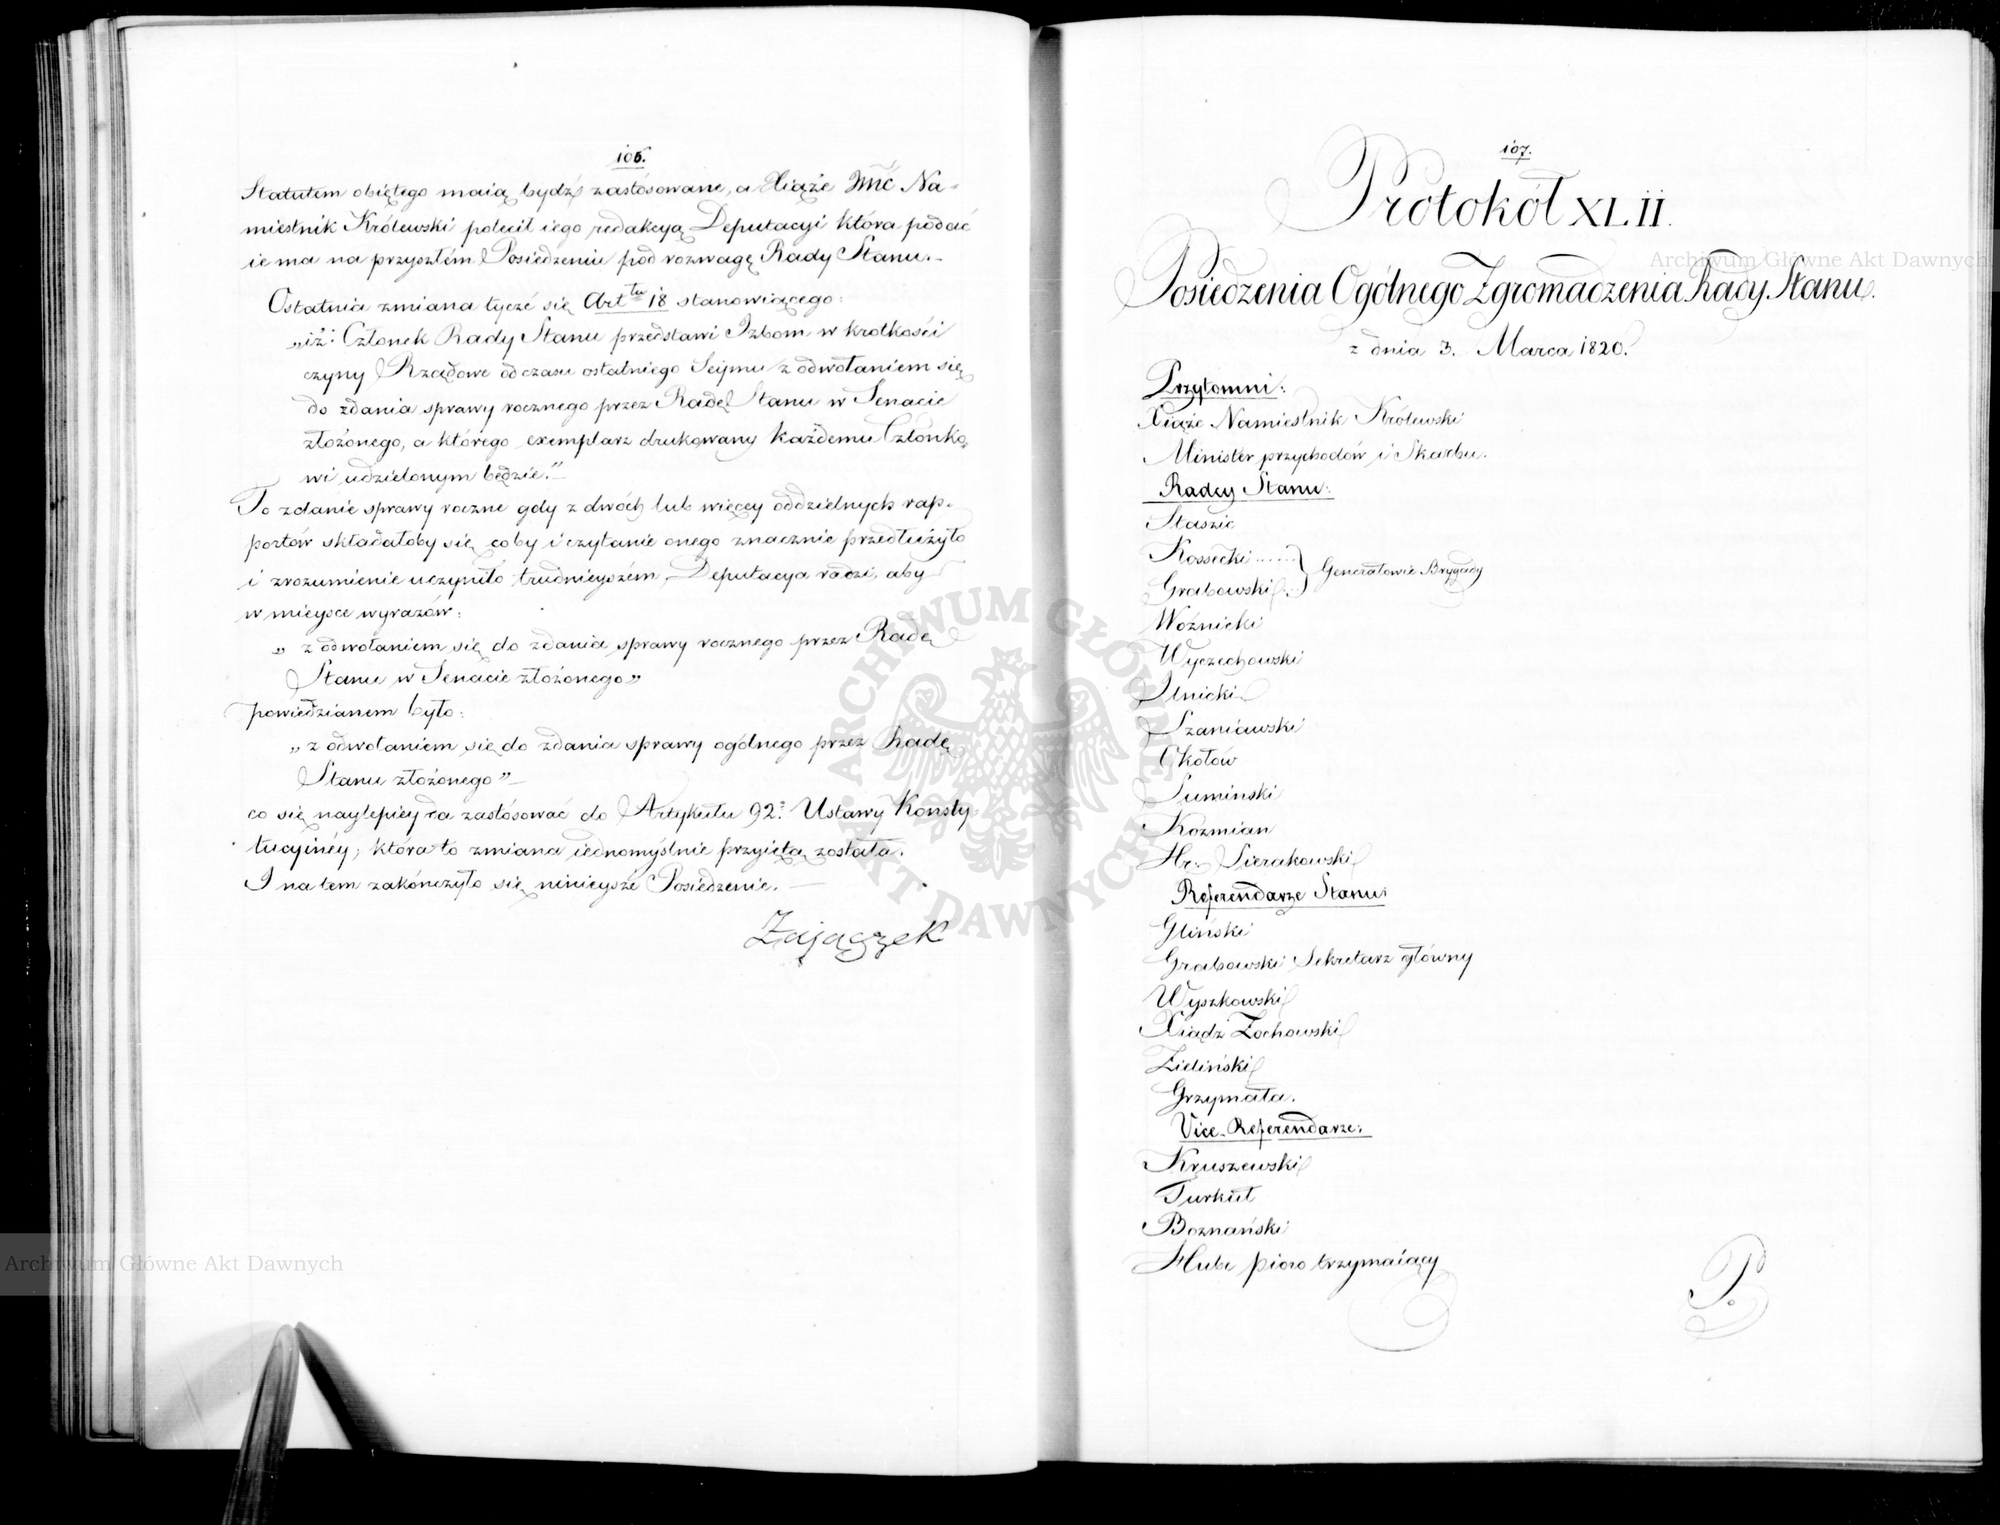 106.
Statutem obiętego maią bydź zastósowane, a Xiąże Jmć Na-
miestnik Królewski polecił iego redakcyą Deputacyi która podać
ie ma na przyszłém Posiedzeniu pod rozwagę Rady Stanu.-
Ostatnia zmiana tyczé się Art tu 18 stanowiącego:
„iż: Członek Rady Stanu przedstawi Izbom w krotkości
czyny Rządowe od czasu ostatniego Seijmu z odwołaniem się
do zdania sprawy rocznego przez Radę Stanu w Senacie
złożonego, a którego exemplarz drukowany każdemu Członko,
wi udzielonym będzie."-
To zdanie sprawy roczne gdy z dwóch lub więcey oddzielnych rap-
portów składałoby się coby i czytanie onego znacznie przedłużyło
i zrozumienie uczyniło trudnieyszém, Deputacya radzi, aby
w mieysce wyrazów:
„ z odwołaniem się do zdania sprawy rocznego przez Radę
Stanu w Senacie złożonego„
powiedzianem było:
„z odwołaniem się do zdania sprawy ogólnego przez Radę
Stanu złożonego"-
co się naylepiey da zastósować do Artykułu 92º Ustawy Konsty-
tucyinéy; która to zmiana iednomyślnie przyiętą została.
I na tem zakończyło się ninieysze Posiedzenie. -
Zajączek
107.
Protokół XLII.
Posiedzenia Ogólnego Zgromadzenia Rady Stanu.
z dnia 3. Marca 1820.
Przytomni:
Xiąże Namiestnik Królewski
Minister przychodów i Skarbu.
Radcy Stanu:
Staszic
Kossecki ......
Grabowski .. } Generałowie Brygady
Woźnicki
Wyczechowski
Ilnicki
Szaniawski
Okołów
Sumiński
Koźmian
Hr: Sierakowski
Referendarze Stanu:
Gliński
Grabowski Sekretarz główny
Wyszkowski
Xiądz Zochowski
Zieliński
Grzymała.
Vice-Referendarze:
Kruszewski
Turkuł
Boznański
Hube pioro trzymaiący
P.
Archiwum Główne Akt Dawnych
Archiwum Główne Akt Dawnych
ARCHIWUM GŁÓWNE AKT DAWNYCH